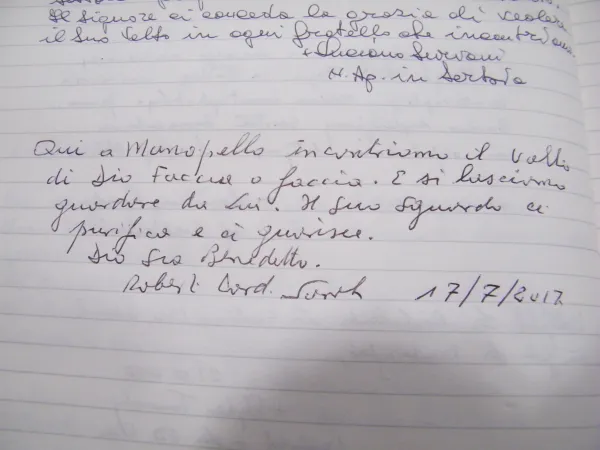 Il Signore ci conceda la grazia di vedere
il Suo Volto in ogni fratello che incontriamo
+ Luciano Suriani
N. Ap. in Serbia
Qui a Manoppello incontriamo il Volto
di Dio Faccia a faccia. E si lasciamo
guardare da Lui. Il Suo Sguardo ci
purifica e ci guarisce.
Dio Sia Benedetto.
Robert Card. Sarah 17/7/2017